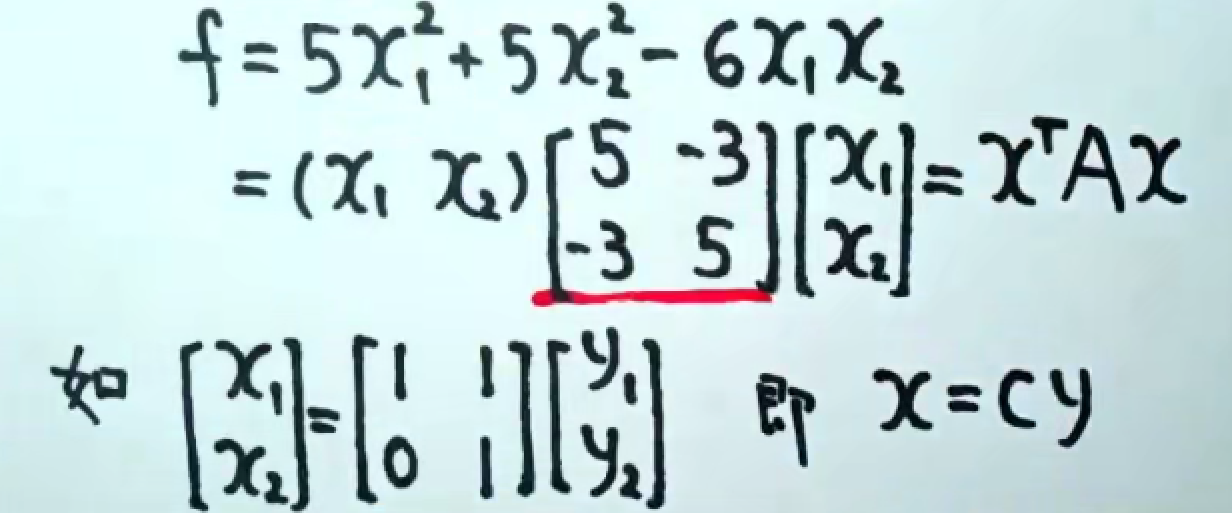 f = 5x₁² + 5x₂² - 6x₁x₂
= (x₁ x₂) [5 -3; -3 5] [x₁; x₂] = xᵀAx
如 [x₁; x₂] = [1 1; 0 1] [y₁; y₂] 即 x = cy